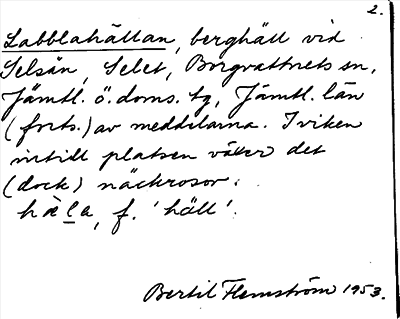 2.
Labblahällan, berghäll vid
Selsån, Selet, Borgvattnets sn,
Jämtl. ö. doms. tg, Jämtl. län
(forts.) av meddelarna. I viken
intill platsen växer det
(dock) näckrosor.
hä̀la, f. 'häll'.
Bertil Flemström 1953.